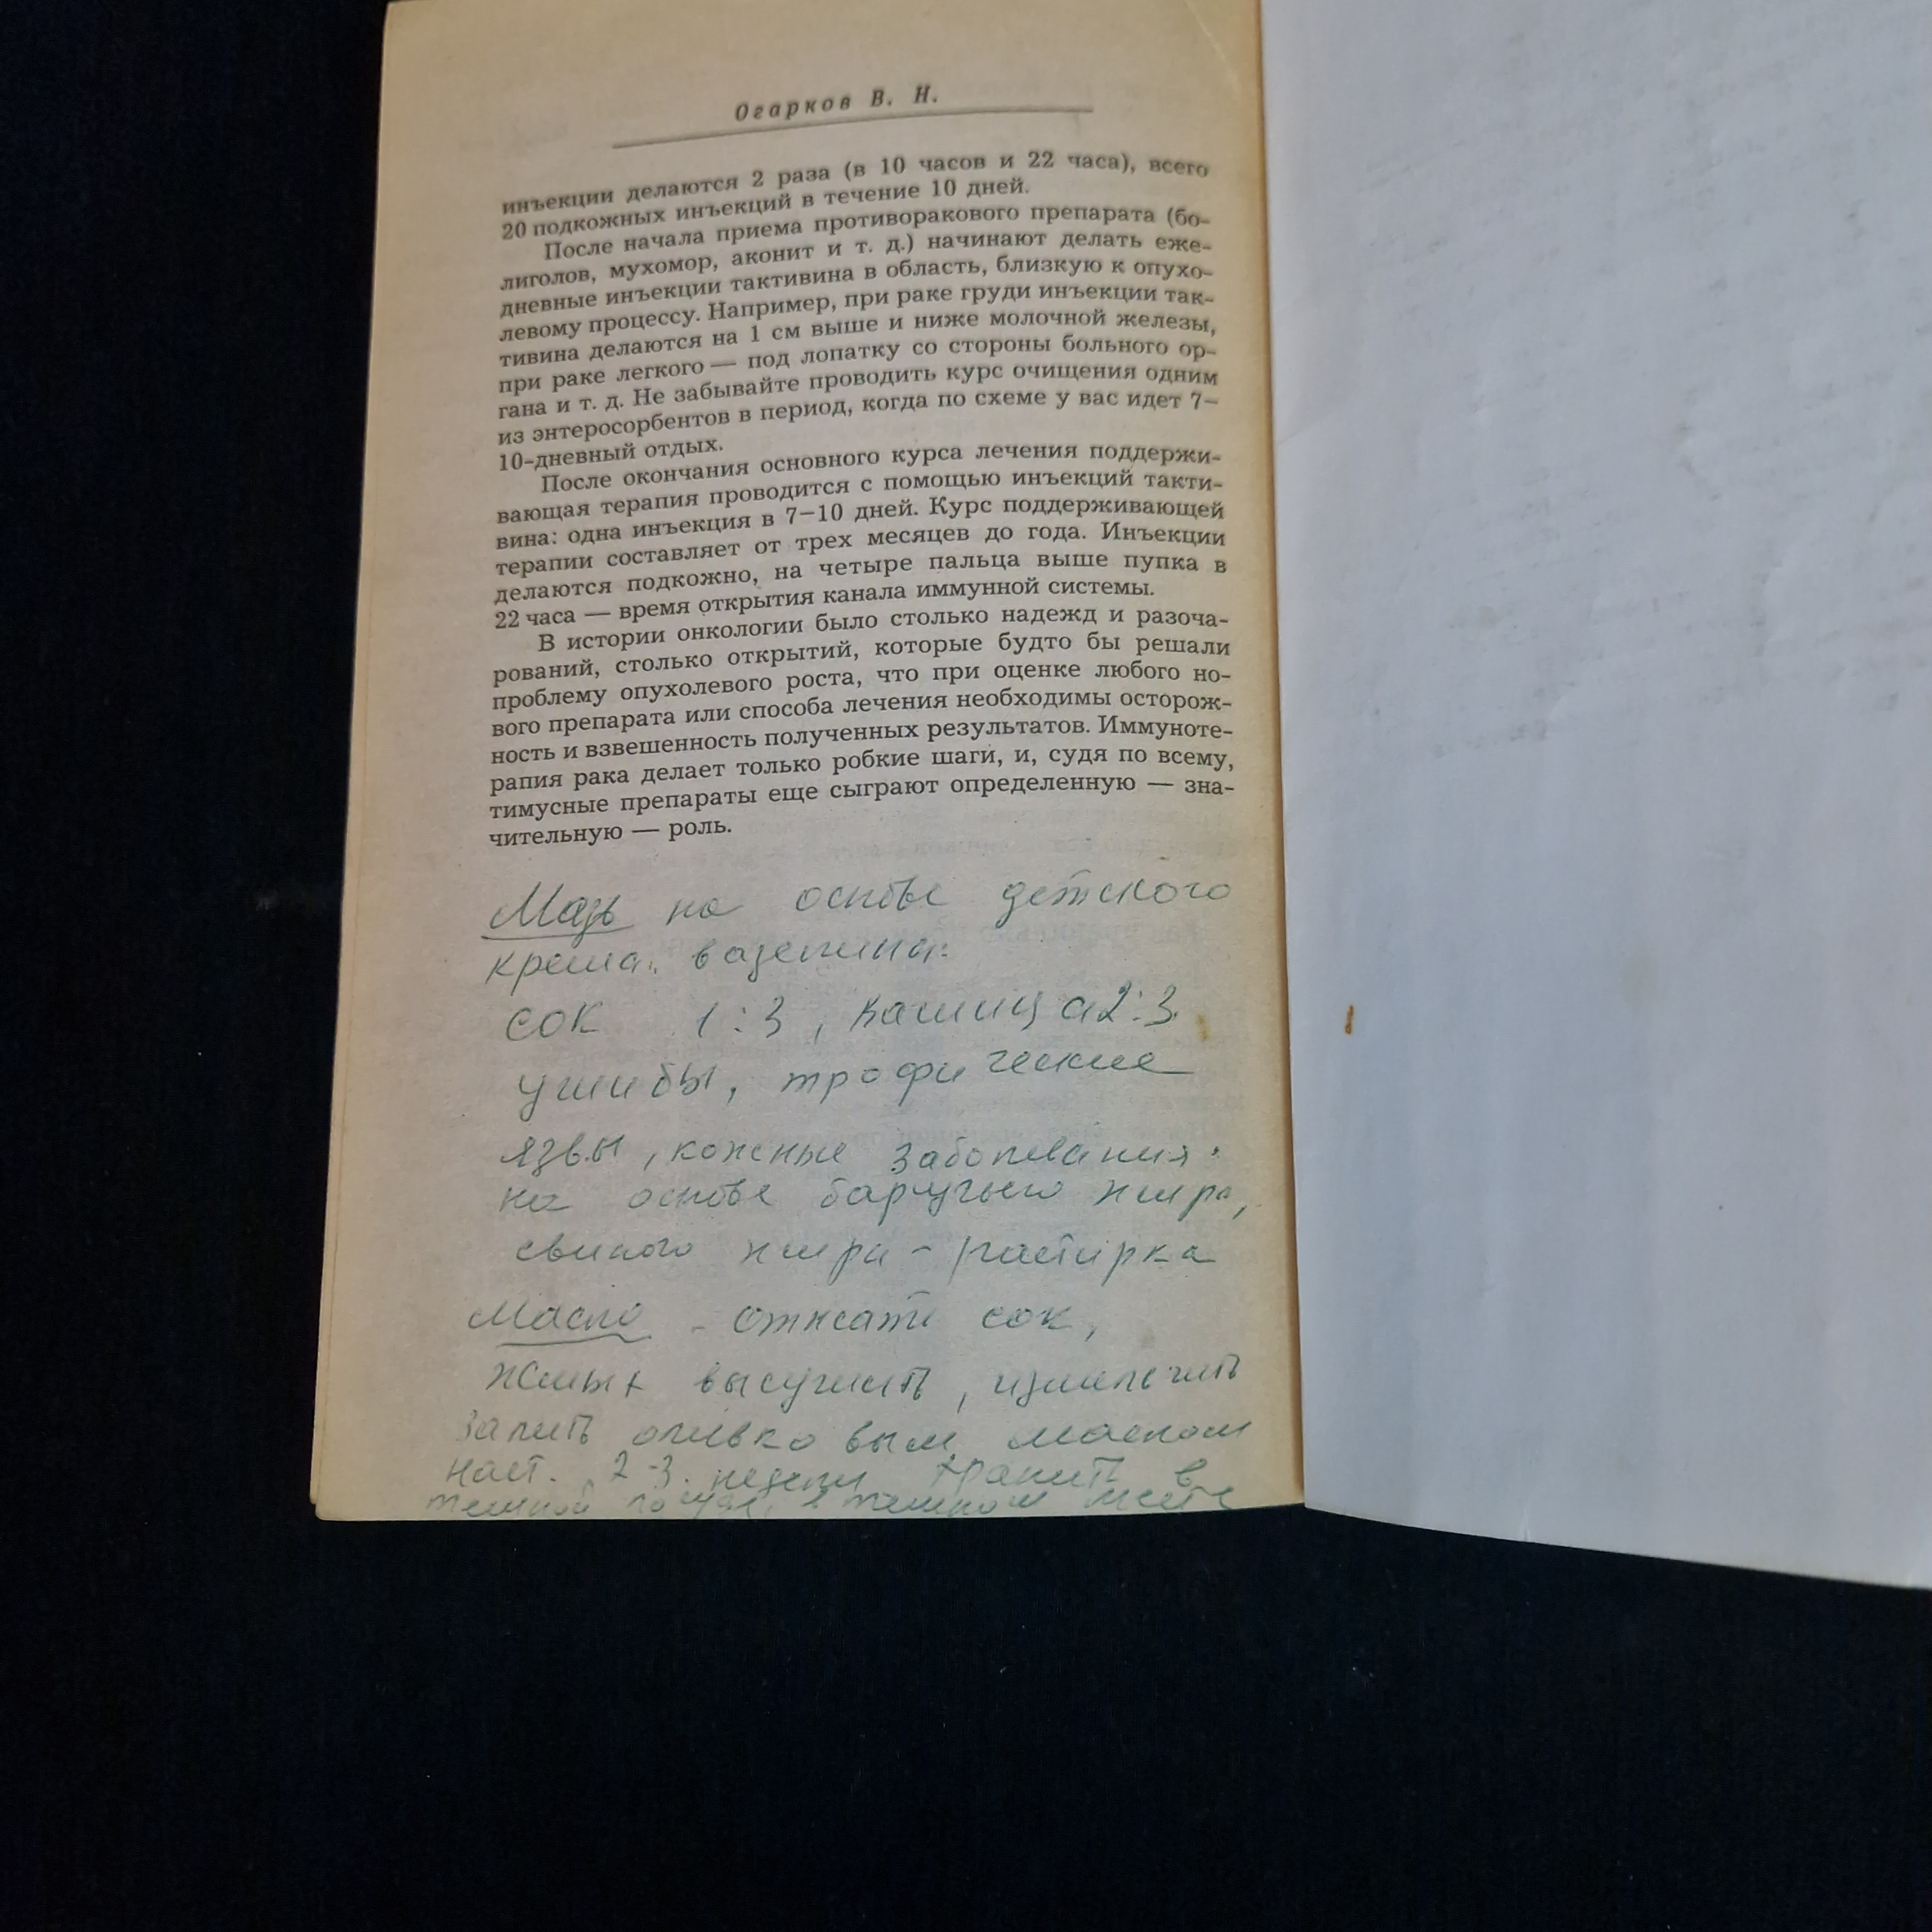 Огарков В. Н.
инъекции делаются 2 раза (в 10 часов и 22 часа), всего
20 подкожных инъекций в течение 10 дней.
После начала приема противоракового препарата (бо-
лиголов, мухомор, аконит и т. д.) начинают делать еже-
дневные инъекции тактивина в область, близкую к опухо-
левому процессу. Например, при раке груди инъекции так-
тивина делаются на 1 см выше и ниже молочной железы,
при раке легкого — под лопатку со стороны больного ор-
гана и т. д. Не забывайте проводить курс очищения одним
из энтеросорбентов в период, когда по схеме у вас идет 7–
10-дневный отдых.
После окончания основного курса лечения поддержи-
вающая терапия проводится с помощью инъекций такти-
вина: одна инъекция в 7–10 дней. Курс поддерживающей
терапии составляет от трех месяцев до года. Инъекции
делаются подкожно, на четыре пальца выше пупка в
22 часа — время открытия канала иммунной системы.
В истории онкологии было столько надежд и разоча-
рований, столько открытий, которые будто бы решали
проблему опухолевого роста, что при оценке любого но-
вого препарата или способа лечения необходимы осторож-
ность и взвешенность полученных результатов. Иммуноте-
рапия рака делает только робкие шаги, и, судя по всему,
тимусные препараты еще сыграют определенную — зна-
чительную — роль.
Мазь на основе детского
крема, вазелина:
сок 1:3, кашица 2:3.
ушибы, трофические
язвы, кожные заболевания.
на основе барсучьего жира,
свиного жира - растирка
Масло - отжать сок,
жмых высушить, измельчить
залить оливковым маслом
наст. 2-3 недели хранить в
темной посуде, в темном месте